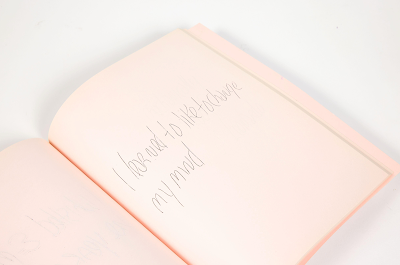 I learned to like to change
my mind